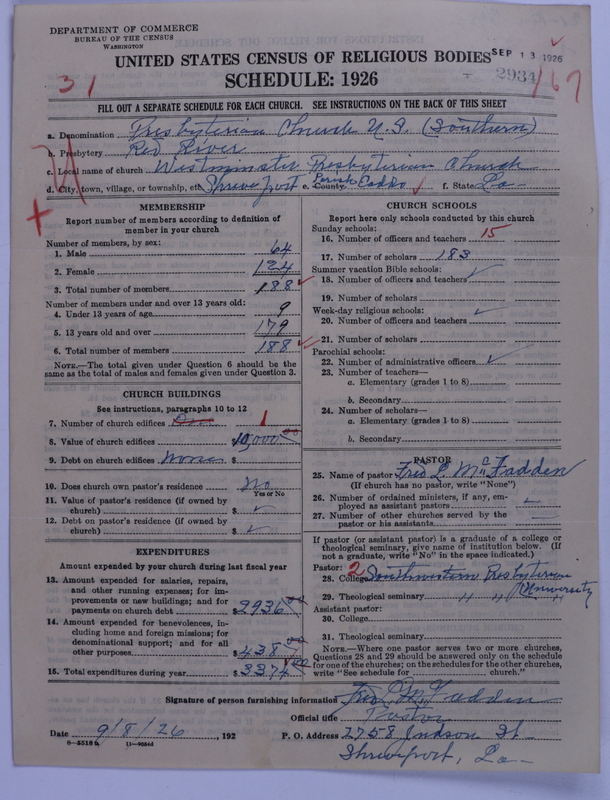 DEPARTMENT OF COMMERCE
BUREAU OF THE CENSUS
WASHINGTON
UNITED STATES CENSUS OF RELIGIOUS BODIES
SEP 13 1926
SCHEDULE: 1926
31
2934
/67
FILL OUT A SEPARATE SCHEDULE FOR EACH CHURCH. SEE INSTRUCTIONS ON THE BACK OF THIS SHEET
a. Denomination Presbyterian Church U.S. (Southern)
b. Presbytery Red River
c. Local name of church Westminster Presbyterian Church
d. City, town, village, or township, etc. Shreveport e. County Parish Caddo f. State La-
MEMBERSHIP
Report number of members according to definition of member in your church
Number of members, by sex:
1. Male 64
2. Female 124
3. Total number of members 188
Number of members under and over 13 years old:
4. Under 13 years of age 9
5. 13 years old and over 179
6. Total number of members 188
NOTE.—The total given under Question 6 should be the same as the total of males and females given under Question 3.
CHURCH BUILDINGS
See instructions, paragraphs 10 to 12
7. Number of church edifices One 1
8. Value of church edifices $10,000 00
9. Debt on church edifices None $
10. Does church own pastor's residence No
Yes or No
11. Value of pastor's residence (if owned by church) $ ✓
12. Debt on pastor's residence (if owned by church) $ ✓
EXPENDITURES
Amount expended by your church during last fiscal year
13. Amount expended for salaries, repairs, and other running expenses; for improvements or new buildings; and for payments on church debt $2936 00
14. Amount expended for benevolences, including home and foreign missions; for denominational support; and for all other purposes $438 00
15. Total expenditures during year $3374 00
CHURCH SCHOOLS
Report here only schools conducted by this church
Sunday schools:
16. Number of officers and teachers 15
17. Number of scholars 183
Summer vacation Bible schools:
18. Number of officers and teachers
19. Number of scholars
Week-day religious schools:
20. Number of officers and teachers
21. Number of scholars
Parochial schools:
22. Number of administrative officers
23. Number of teachers—
a. Elementary (grades 1 to 8)
b. Secondary
24. Number of scholars—
a. Elementary (grades 1 to 8)
b. Secondary
PASTOR
25. Name of pastor Fred L. McFadden
(If church has no pastor, write "None")
26. Number of ordained ministers, if any, employed as assistant pastors
27. Number of other churches served by the pastor or his assistants
If pastor (or assistant pastor) is a graduate of a college or theological seminary, give name of institution below. (If not a graduate, write "No" in the space indicated.)
Pastor: 2
28. College Southwestern Presbyterian University
29. Theological seminary " " "
Assistant pastor:
30. College
31. Theological seminary
NOTE.—Where one pastor serves two or more churches, Questions 28 and 29 should be answered only on the schedule for one of the churches; on the schedules for the other churches, write "See schedule for church."
Signature of person furnishing information Fred L. McFadden
Official title Pastor
Date 9/8/26, 192
P. O. Address 2758 Judson St.
Shreveport, La-
8—5516a 11—9034d